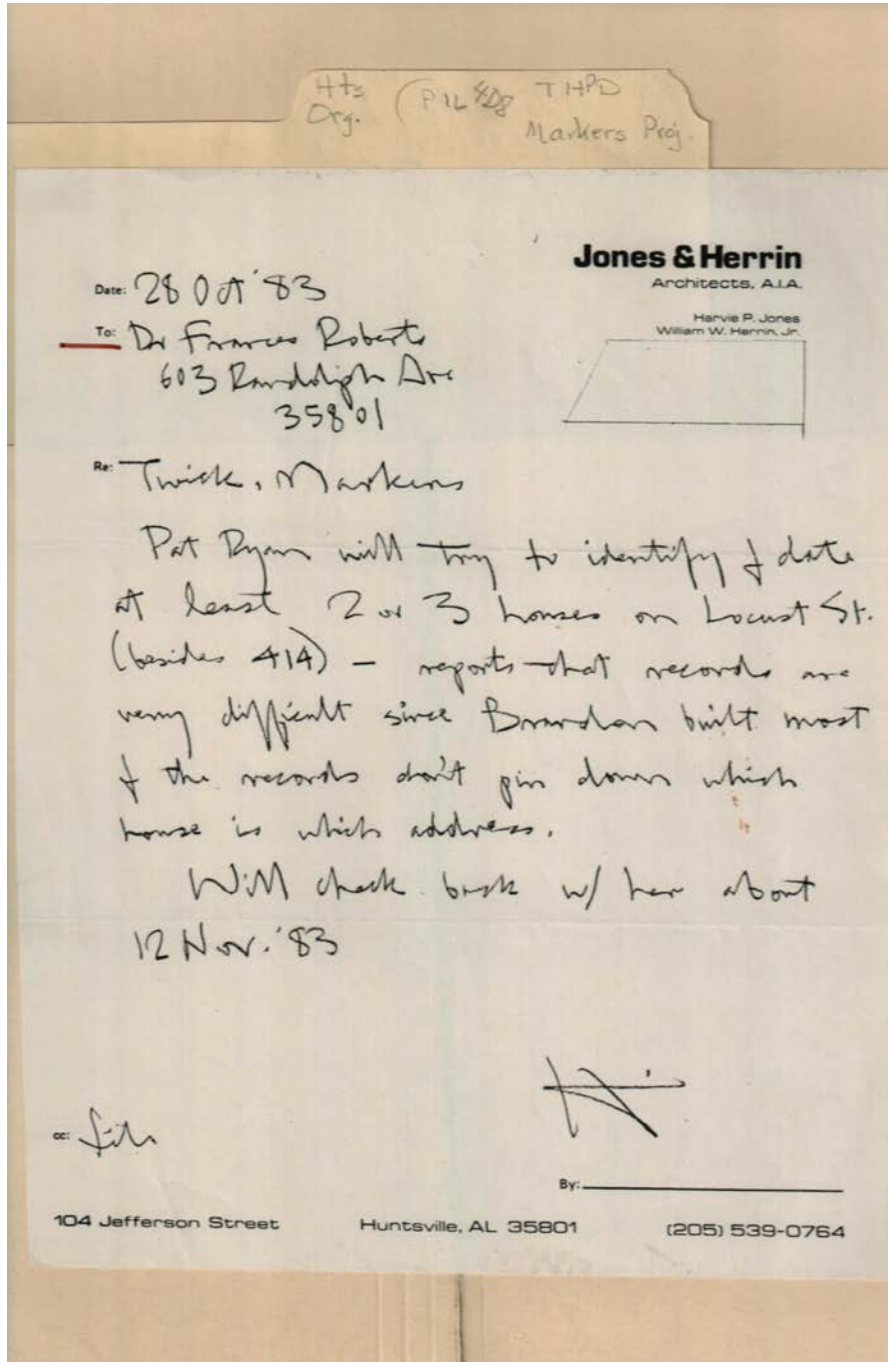 Hts THPD
Org. (
Markers Proj.
Jones & Herrin
Architects, A.I.A.
Harvie P. Jones
William W. Herrin, Jr.
Date: 28 Oct '83
To: Dr Frances Roberts
603 Randolph Ave
35801
Re: Twick. Markers
Pat Ryan will try to identify & date
at least 2 or 3 houses on Locust St.
(besides 414) - reports that records are
very difficult since Brandon built most
& the records don't pin down which
house is which address.
Will check back w/ her about
12 Nov. '83
cc: file
By:
104 Jefferson Street Huntsville, AL 35801 (205) 539-0764